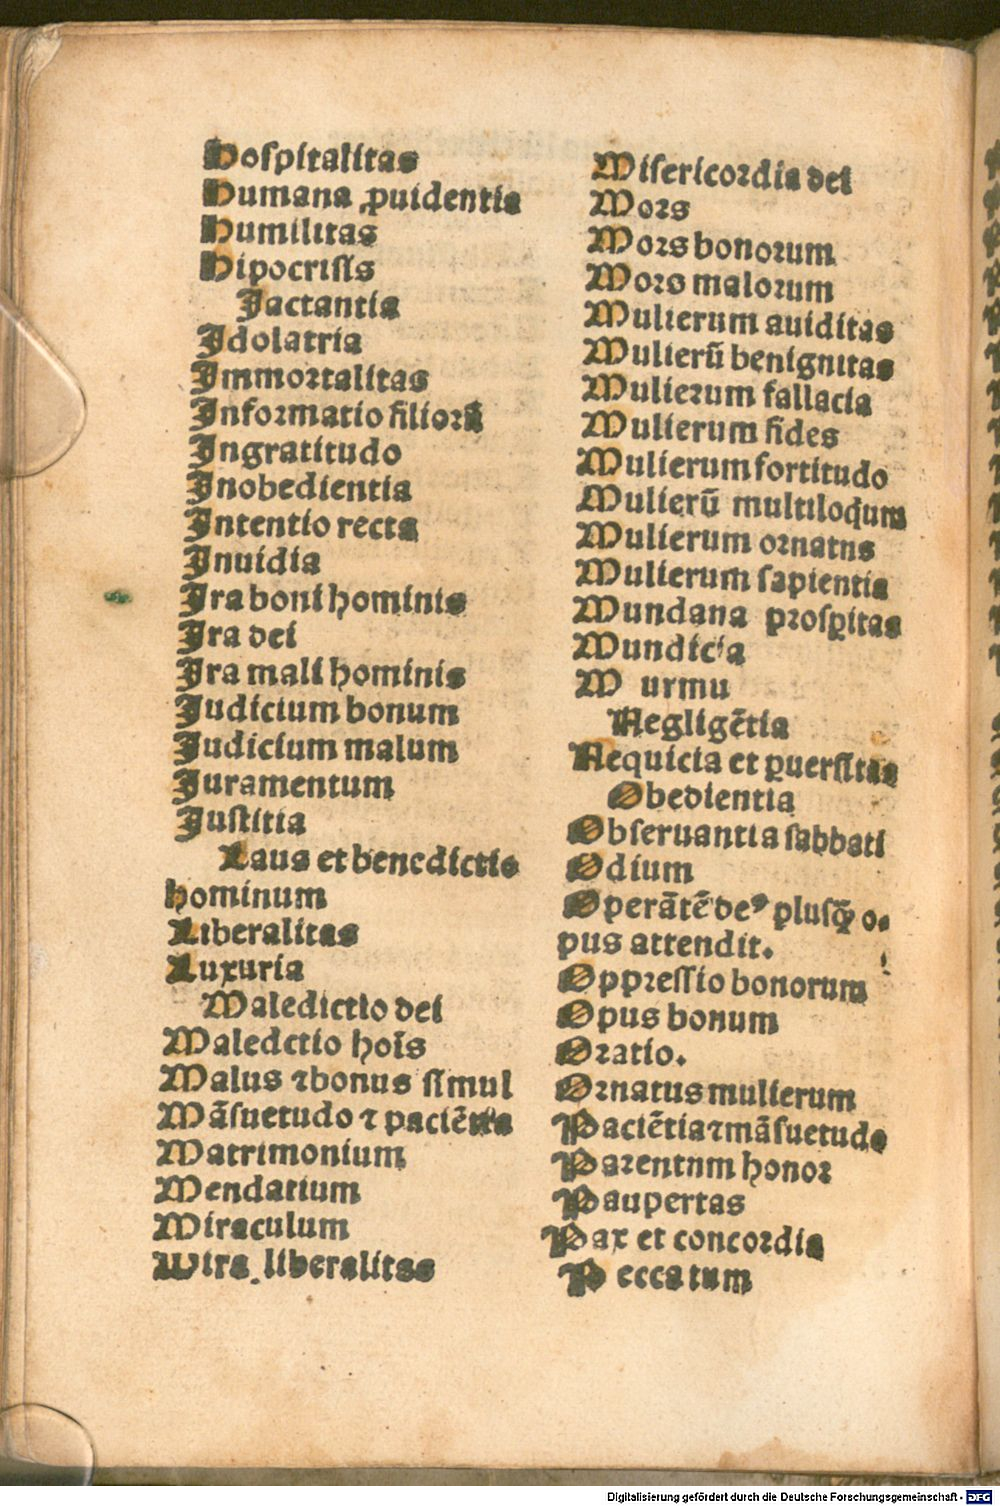 Hospitalitas
Humana ꝓuidentia
Humilitas
Hipocrisis
Jactantia
Idolatria
Immortalitas
Informatio filiorū
Ingratitudo
Inobedientia
Intentio recta
Inuidia
Ira boni hominis
Ira dei
Ira mali hominis
Judicium bonum
Judicium malum
Juramentum
Justitia
Laus et benedictio
hominum
Liberalitas
Luxuria
Maledictio dei
Maledctio hoīs
Malus ⁊ bonus simul
Māsuetudo ⁊ paciētia
Matrimonium
Mendatium
Miraculum
Mira liberalitas
Misericordia dei
Mors
Mors bonorum
Mors malorum
Mulierum auiditas
Mulierū benignitas
Mulierum fallacia
Mulierum fides
Mulierum fortitudo
Mulierū multiloq̇um
Mulierum ornatns
Mulierum sapientia
Mundana prosꝑitas
Mundicia
M urmu
Negligētia
Nequicia et ꝑuersitas
Obedientia
Obseruantia sabbati
Odium
Operātē deꝰ plusq̄ȝ o⸗
pus attendit.
Oppressio bonorum
Opus bonum
Oratio.
Ornatus mulierum
Paciētia ⁊ māsuetudo
Parentnm honor
Paupertas
Pax et concordia
P eccatum
Digitalisierung gefördert durch die Deutsche Forschungsgemeinschaft - DFG